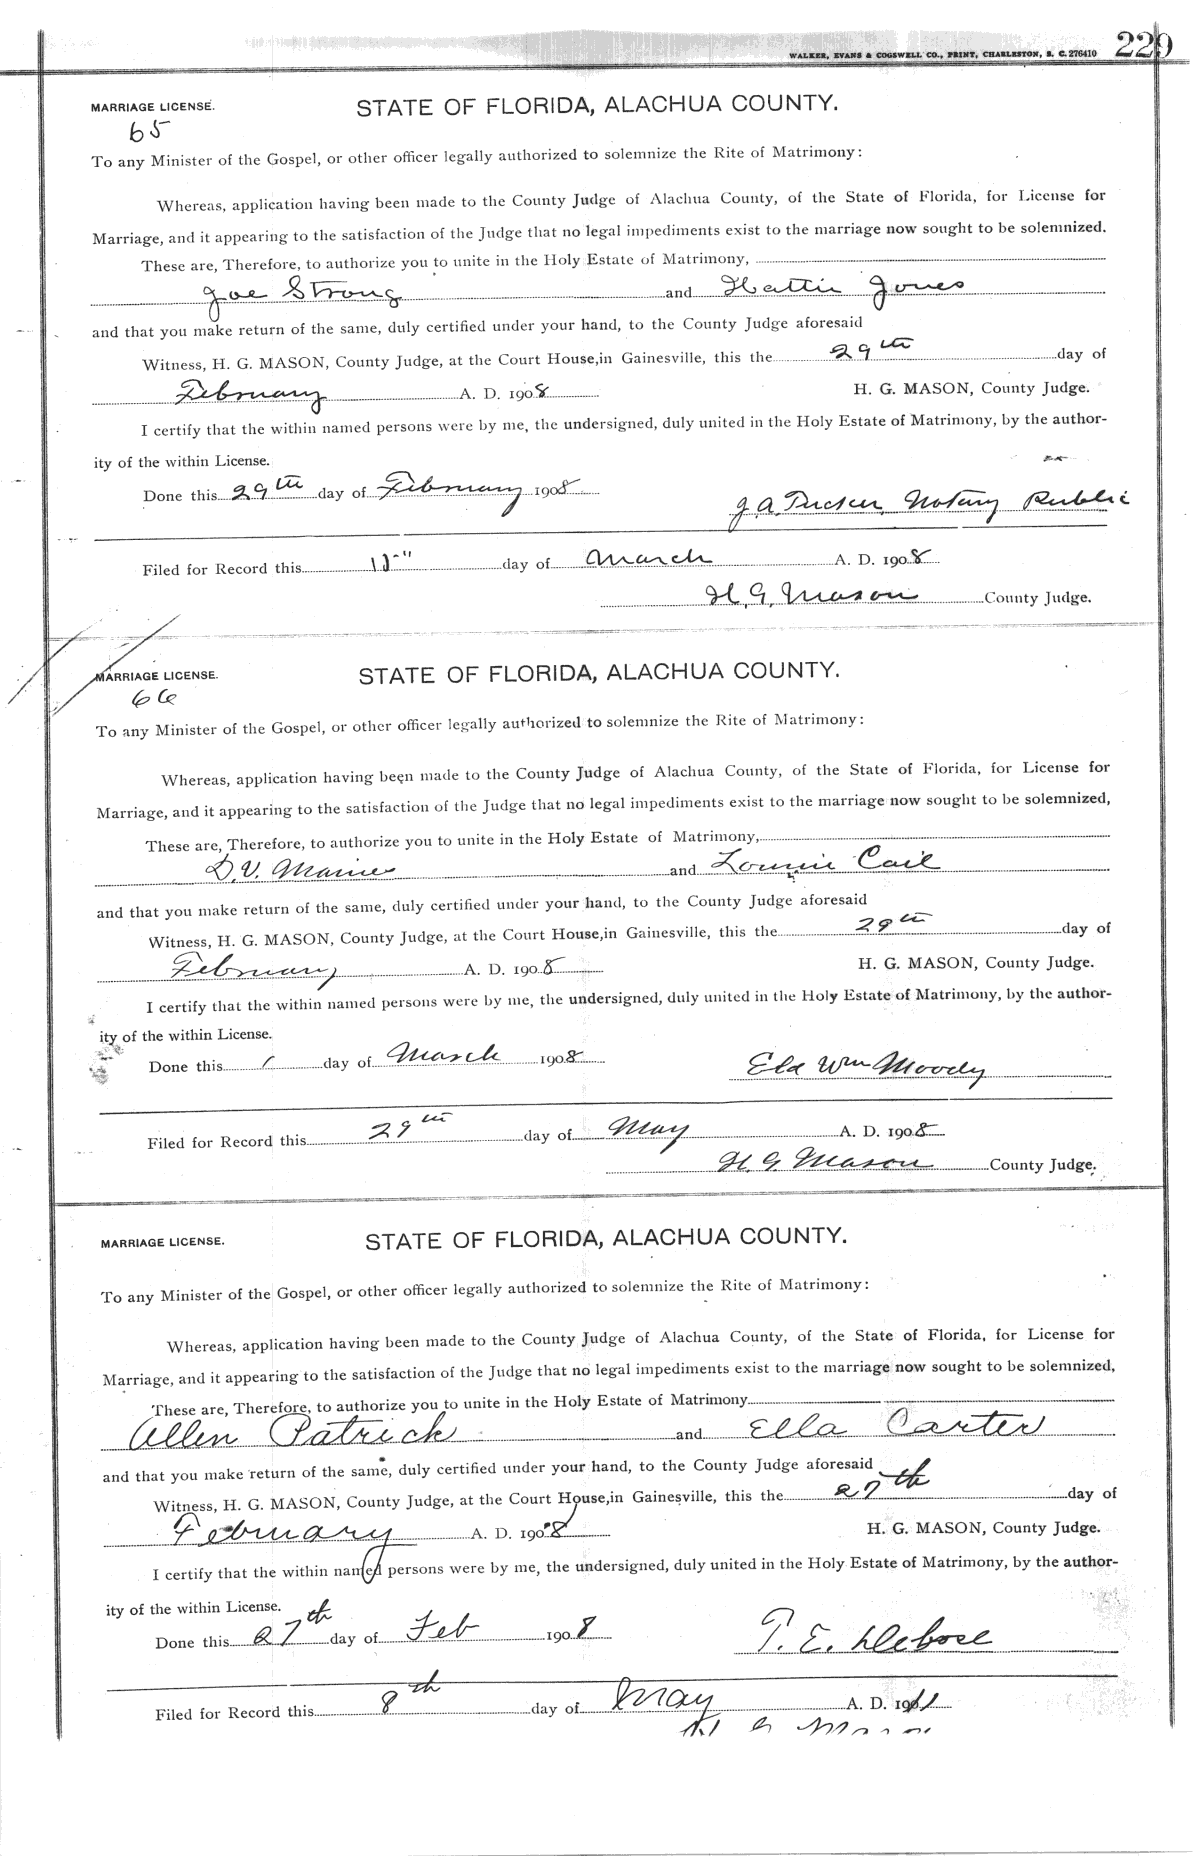 WALKER, EVANS & COGSWELL CO., PRINT, CHARLESTON, S. C. 276410 229
MARRIAGE LICENSE. STATE OF FLORIDA, ALACHUA COUNTY.
65
To any Minister of the Gospel, or other officer legally authorized to solemnize the Rite of Matrimony:
Whereas, application having been made to the County Judge of Alachua County, of the State of Florida, for License for
Marriage, and it appearing to the satisfaction of the Judge that no legal impediments exist to the marriage now sought to be solemnized.
These are, Therefore, to authorize you to unite in the Holy Estate of Matrimony,
Joe Strong and Hattie Jones
and that you make return of the same, duly certified under your hand, to the County Judge aforesaid
Witness, H. G. MASON, County Judge, at the Court House, in Gainesville, this the 29th day of
February A. D. 1908 H. G. MASON, County Judge.
I certify that the within named persons were by me, the undersigned, duly united in the Holy Estate of Matrimony, by the author-
ity of the within License.
Done this 29th day of February 1908
J. A. Tucker, Notary Public
Filed for Record this day of March A. D. 1908
H. G. Mason County Judge.
MARRIAGE LICENSE. STATE OF FLORIDA, ALACHUA COUNTY.
66
To any Minister of the Gospel, or other officer legally authorized to solemnize the Rite of Matrimony:
Whereas, application having been made to the County Judge of Alachua County, of the State of Florida, for License for
Marriage, and it appearing to the satisfaction of the Judge that no legal impediments exist to the marriage now sought to be solemnized,
These are, Therefore, to authorize you to unite in the Holy Estate of Matrimony,
D. V. Maines and Lonnie Cail
and that you make return of the same, duly certified under your hand, to the County Judge aforesaid
Witness, H. G. MASON, County Judge, at the Court House, in Gainesville, this the 29th day of
February A. D. 1908 H. G. MASON, County Judge.
I certify that the within named persons were by me, the undersigned, duly united in the Holy Estate of Matrimony, by the author-
ity of the within License.
Done this 1 day of March 1908 Eld Wm Moody
Filed for Record this 29th day of May A. D. 1908
H. G. Mason County Judge.
MARRIAGE LICENSE. STATE OF FLORIDA, ALACHUA COUNTY.
To any Minister of the Gospel, or other officer legally authorized to solemnize the Rite of Matrimony:
Whereas, application having been made to the County Judge of Alachua County, of the State of Florida, for License for
Marriage, and it appearing to the satisfaction of the Judge that no legal impediments exist to the marriage now sought to be solemnized,
These are, Therefore, to authorize you to unite in the Holy Estate of Matrimony
Allen Patrick and Ella Carter
and that you make return of the same, duly certified under your hand, to the County Judge aforesaid
Witness, H. G. MASON, County Judge, at the Court House, in Gainesville, this the 27th day of
February A. D. 1908 H. G. MASON, County Judge.
I certify that the within named persons were by me, the undersigned, duly united in the Holy Estate of Matrimony, by the author-
ity of the within License.
Done this 27th day of Feb 1908 T. E. Debose
Filed for Record this 8th day of May A. D. 1911
H G Mason